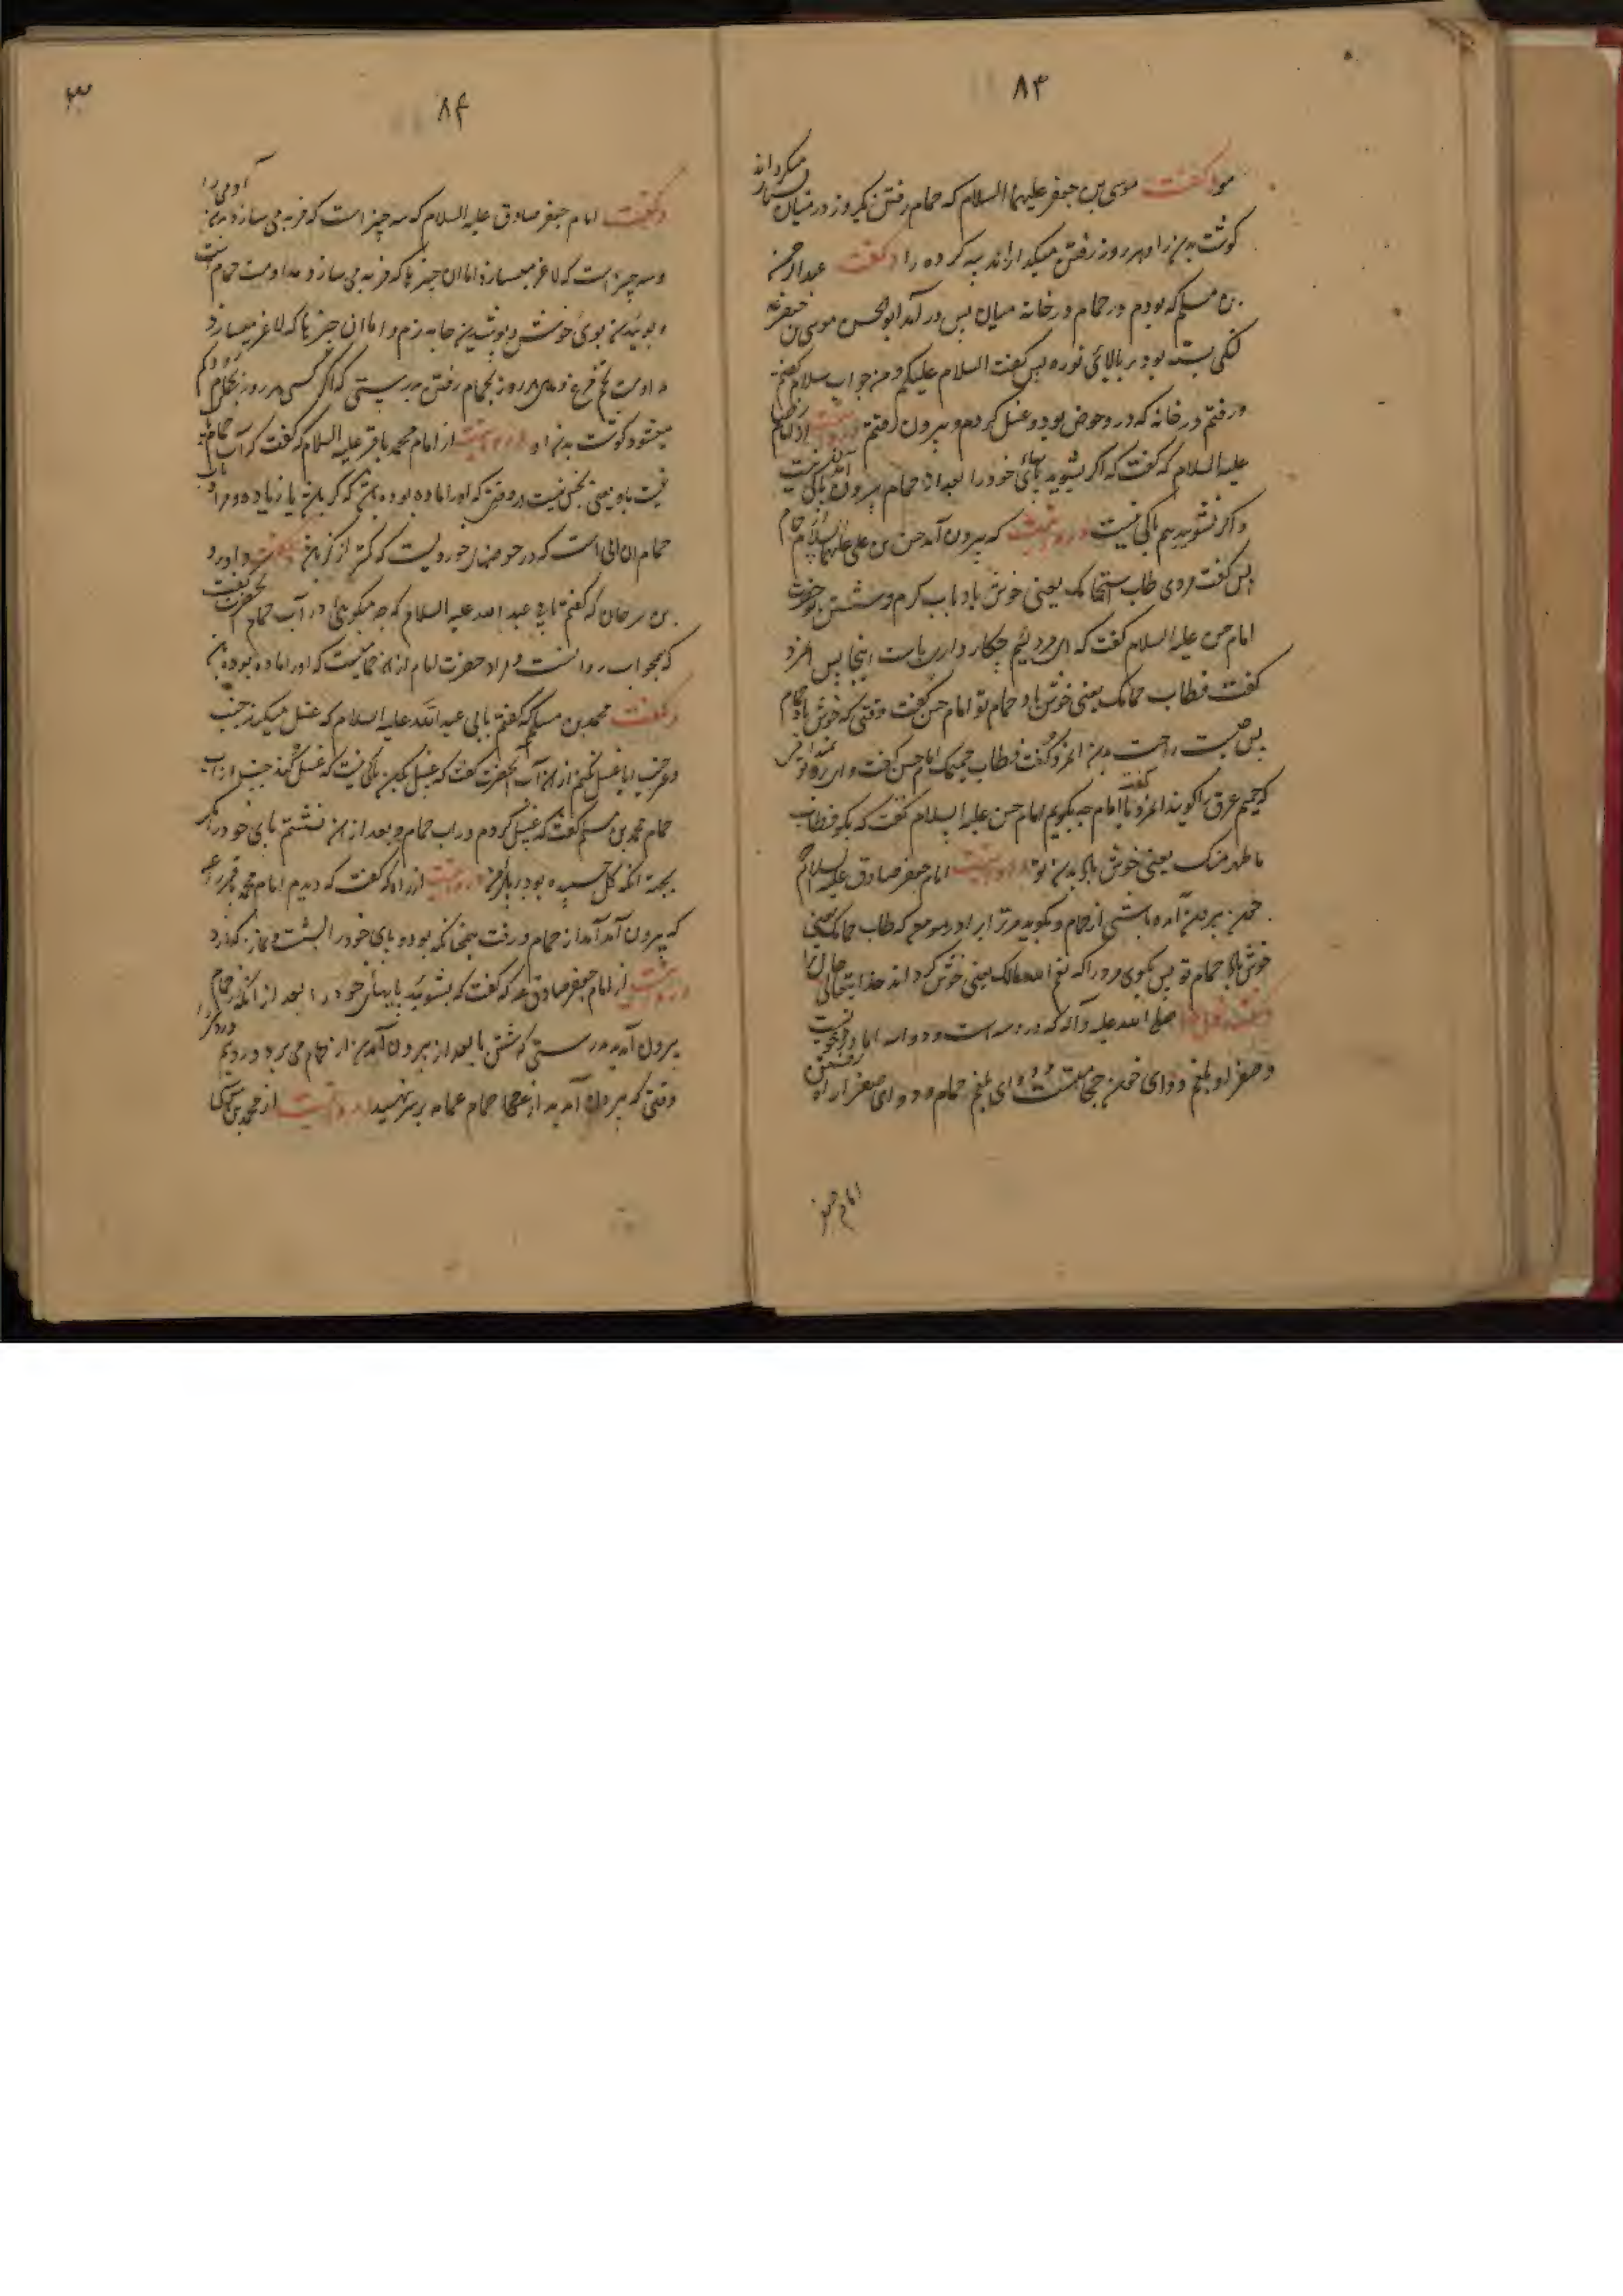 ۸۳
مو وگفت موسی بن جعفر علیهما السلام که حمام رفتن یکروز در میان بسیار میکرداند
کوشت بدن را و هر روز رفتن میکدازاند پیه کرده را وگفت عبدالرحمن
بن مسلم که بودم در حمام در خانه میان پس در آمد ابوالحسن موسی بن جعفر
لنکی بسته بود بر بالائی نوره پس گفت السلام علیکم و من جواب سلام کفتم
و رفتم در خانه که در و حوض بود و غسل کردم و بیرون رفتم
علیه السلام که گفت که اگر بشویید پاهائی خود را بعد از حمام بیرون باکی نیست
و اگر نشویید هم باکی نیست و روایتست که بیرون آمد حسن بن علی علیهما السلام از حمام
پس گفت مردی طاب استحمامک یعنی خوش باد باب کرم و شستن تو حضرت
امام حسن علیه السلام گفت که ای مرد لئیم چکار دارد است اینجا پس انمرد
گفت فطاب حمامک یعنی خوش باد حمام تو امام حسن گفت وقتی که خوش باد حمام
پس چیست راحت بدن انمرد گفت فطاب حمیمک امام حسن گفت وای بر تو نمیدانی
که حمیم عرق را گویند انمرد گفت یا امام چه بگویم امام حسن علیه السلام گفت که بگو فطاب
ما طهر منک یعنی خوش باد بدن تو و روایتست امام جعفر صادق علیه السلام
چون بیرون آمده باشی از حمام و بگوید مر ترا برادر مومن که طاب حمامک یعنی
خوش باد حمام تو پس بگوی مر او را که انعم الله بالک یعنی خوش کرداند خدایتعالی حال ترا
صلی الله علیه وآله که درد سه است و دوا سه اما درد خونست
و صفرا و بلغم و دوای خون حجامتست و دوای بلغم حمام و دوای صفرا راه رفتن
امام جعفر
۸۴
وگفت امام جعفر صادق علیه السلام که سه چیز است که فربه می سازد بدن آدمی را
و سه چیز است که لاغر میسازد اما ان چیزها که فربه می سازد مداومت حمام است
و بوئیدن بوی خوش و پوشیدن جامه نرم و اما ان چیزها که لاغر میسازد
مداومت تخم مرغ و هر روز بحمام رفتن بدرستی که اگر کسی هر روز بحمام رود کم
میشود کوشت بدن او و روایتست از امام محمد باقر علیه السلام که گفت که آب حمام باکی
نیست باو یعنی نجس نیست در وقتی که او را ماده بوده باشد که کر باشد یا زیاده و مراد
حمام ان ابی است که در حوضهای خوردیست که کمتر از کر باشد وگفت داود
بن سرحان که گفتم بابی عبد الله علیه السلام که چه میگوئی در آب حمام آنحضرت گفت
که بجواب روانست و مراد حضرت امام از ان حمامیست که او را ماده بوده باشد
وگفت محمد بن مسلم که گفتم بابی عبد الله علیه السلام که غسل میکند جنب
و غیر جنب ایا غسل بکنم از ان آب انحضرت گفت که غسل بکن باکی نیست که غسل کند جنب از آب
حمام محمد بن مسلم گفت که غسل کردم در اب حمام و بعد از ان نشستم پای خود را مگر
بجهة انکه گل چسپیده بود بر پای من و روایتست از زراره که گفت که دیدم امام محمد باقر را
که بیرون آمد از حمام و رفت همچنانکه بود و پای خود را نشست و نماز گذارد
و روایتست از امام جعفر صادق که گفت که بشوئید پایهای خود را بعد از انکه از حمام
بیرون آمدید بدرستی که شستن پا بعد از بیرون آمدن از حمام می برد درد نیم
وقتی که بیرون آمدید از حمام عمامه بر سر نهید و روایتست از محمد بن